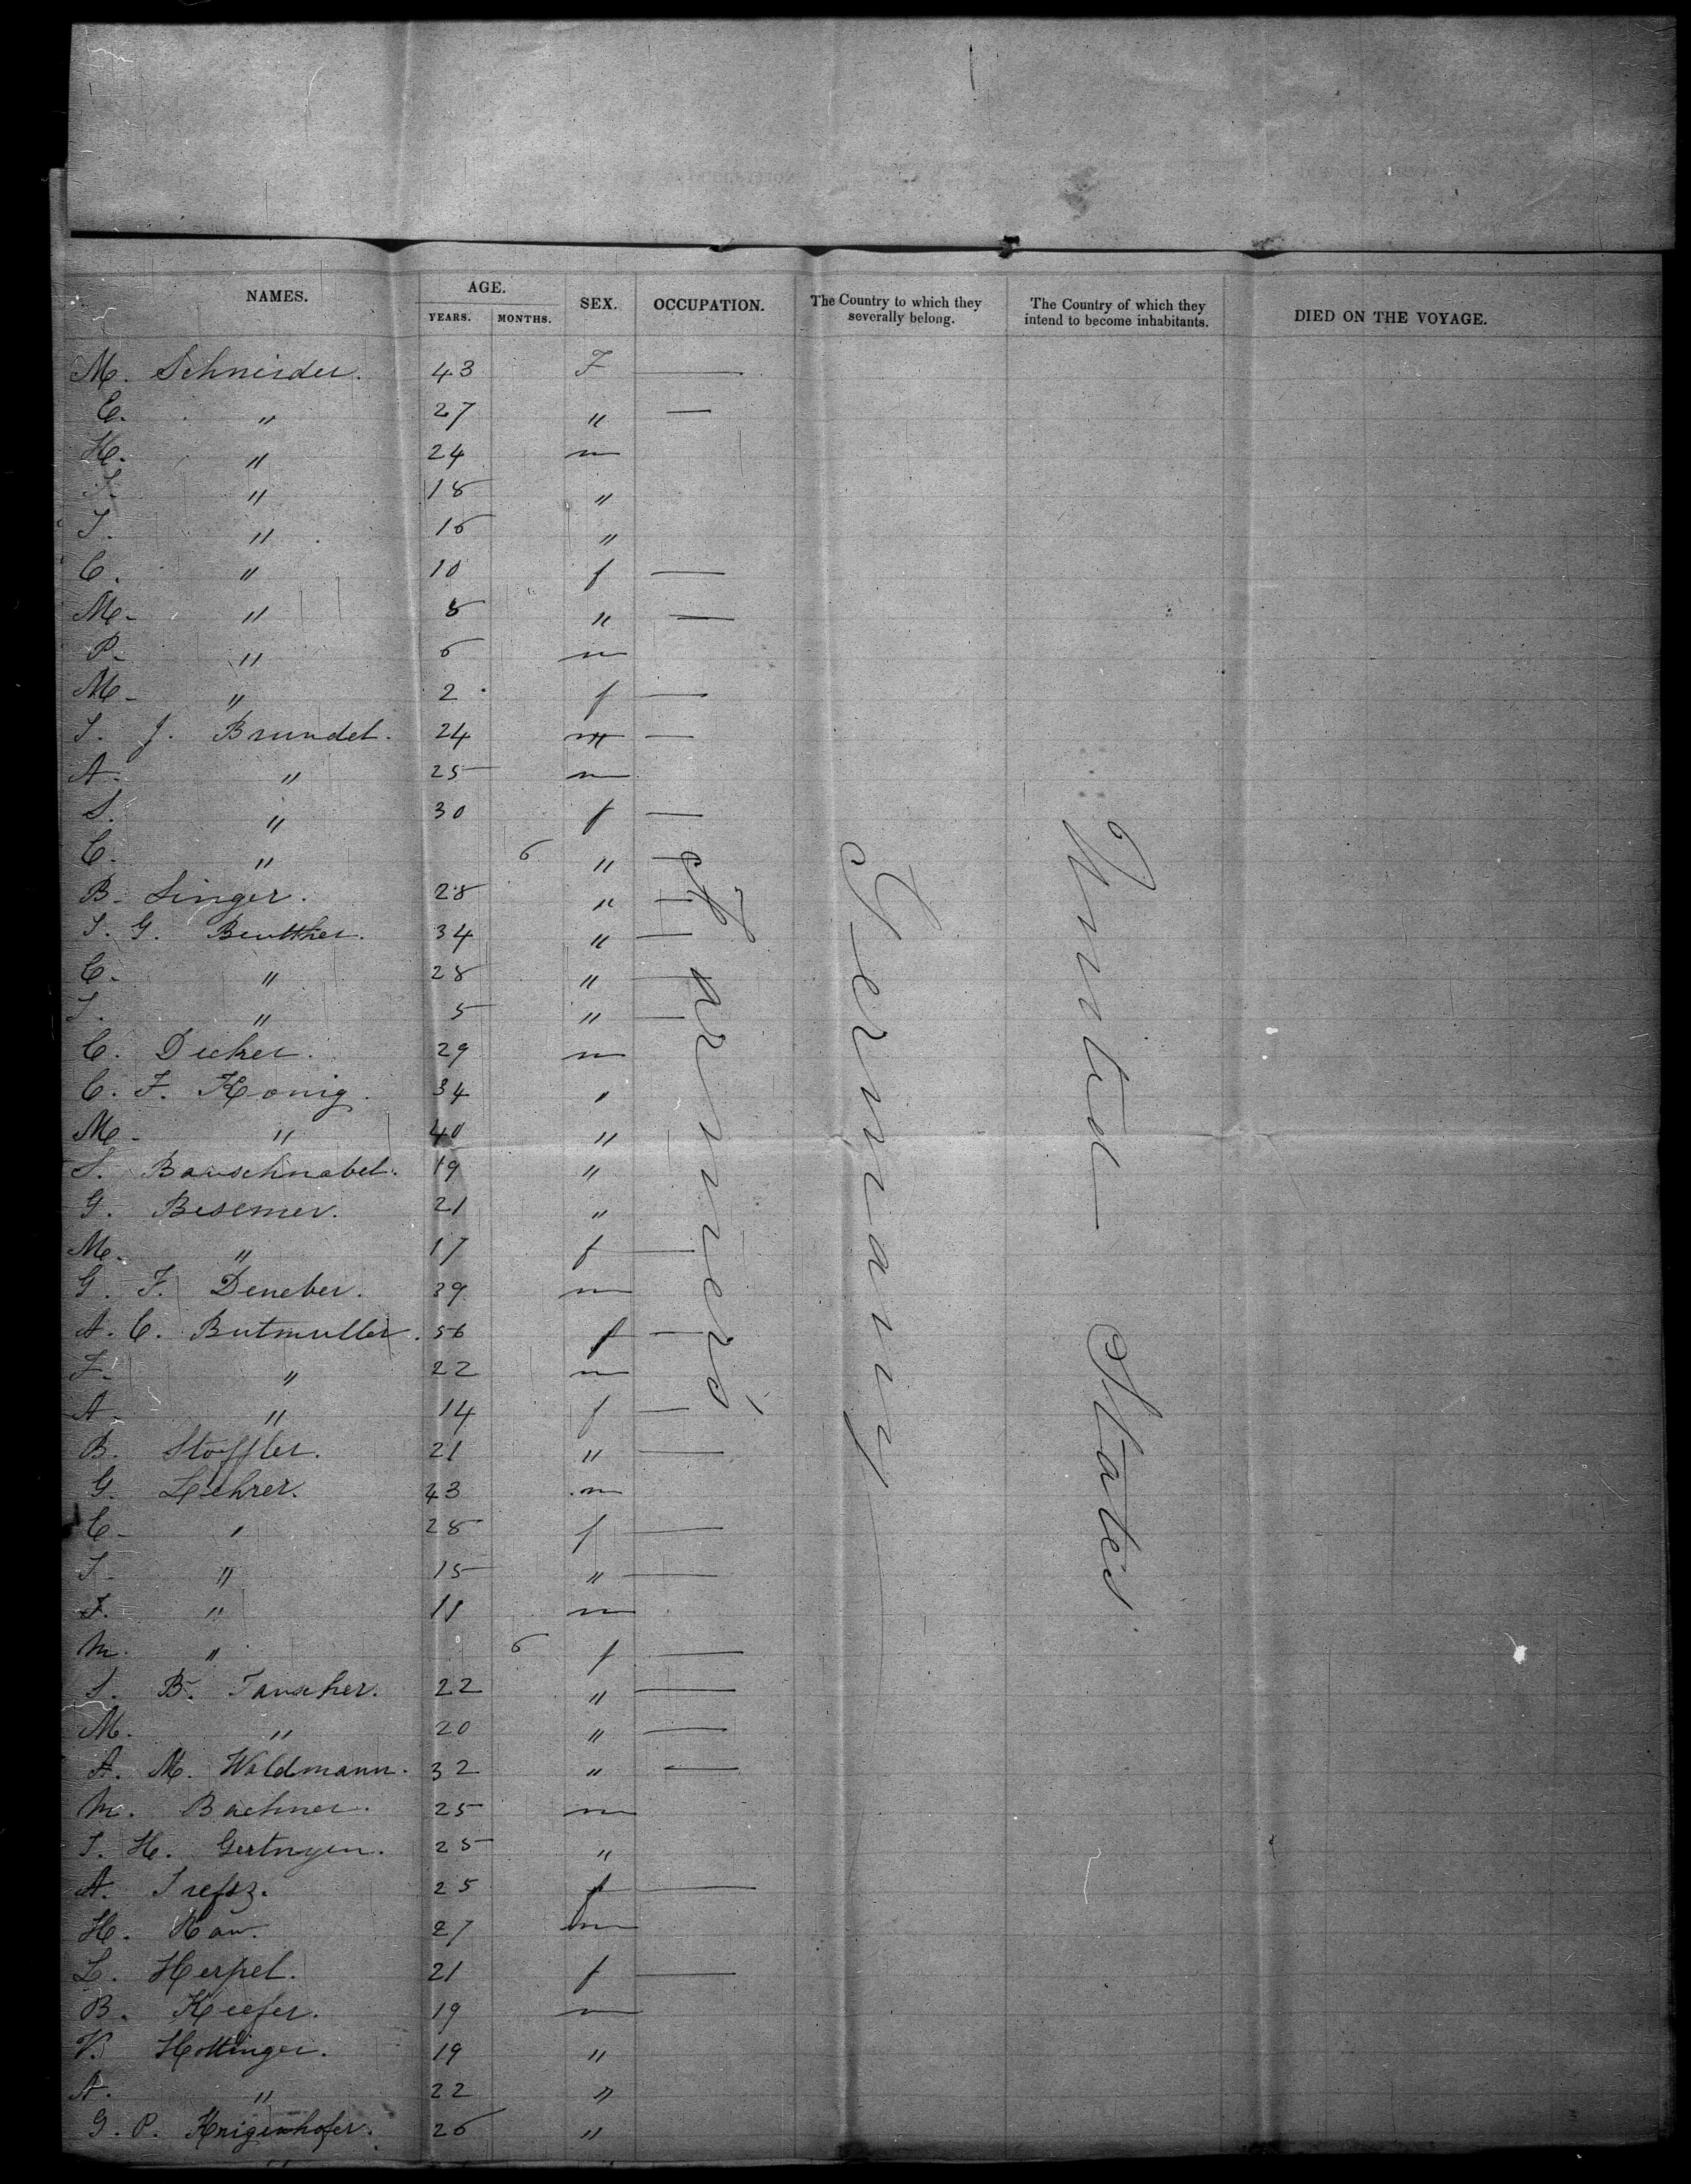 NAMES. AGE. SEX. OCCUPATION. The Country to which they severally belong. The Country of which they intend to become inhabitants. DIED ON THE VOYAGE.
YEARS. MONTHS.
M. Schneider. 43 F —
C. " 27 " —
H. " 24 m
S. " 18 "
J. " 16 "
C. " 10 f —
M. " 8 " —
P. " 6 m
M. " 2 f —
J. J. Brundel. 24 m —
A. " 25 m
S. " 30 f —
C. " 6 " —
B. Singer. 28 " —
J. G. Beutther. 34 " —
C. " 28 " —
J. " 5 " —
C. Decker. 29 m
C. F. Konig. 34 "
M. " 40 "
S. Bauschnabel. 19 "
G. Besemer. 21 "
M. " 17 f —
G. F. Deneber. 39 m
A. C. Butmuller. 56 f —
F. " 22 m
A. " 14 f —
B. Stoffler. 21 " —
G. Lehrer. 43 m
C. " 28 f —
J. " 15 " —
F. " 11 m
M. " 6 f —
S. B. Tauscher. 22 " —
M. " 20 " —
A. M. Waldmann. 32 " —
M. Bachner. 25 m
J. H. 25 "
A. Trefsz. 25 f —
H. Rau. 27 m
L. Herpel. 21 f —
B. Keefer. 19 m
V. Hottinger. 19 "
A. " 22 "
G. P. Knigenhofer. 26 "
Farmers
Germany
United States